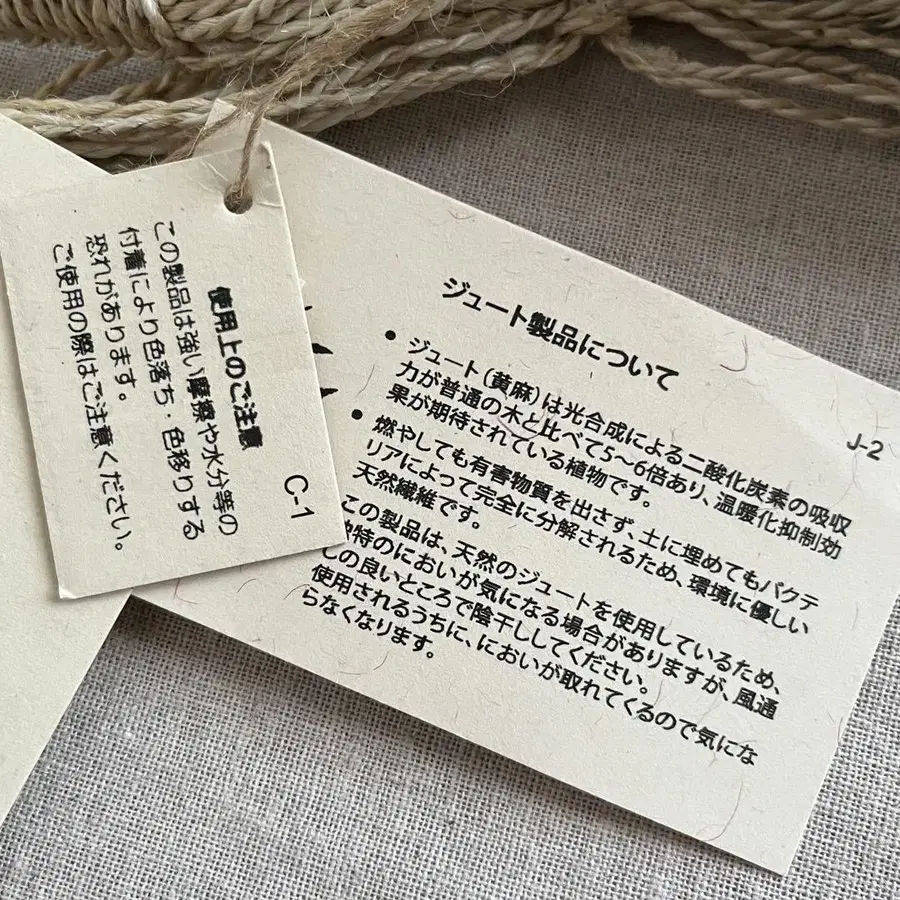 使用上のご注意
この製品は強い摩擦や水分等の
付着により色落ち・色移りする
恐れがあります。
ご使用の際はご注意ください。
C-1
ジュート製品について
J-2
● ジュート(黄麻)は光合成による二酸化炭素の吸収
力が普通の木と比べて5〜6倍あり、温暖化抑制効
果が期待されている植物です。
● 燃やしても有害物質を出さず、土に埋めてもバクテ
リアによって完全に分解されるため、環境に優しい
天然繊維です。
この製品は、天然のジュートを使用しているため、
特のにおいが気になる場合がありますが、風通
しの良いところで陰干ししてください。
使用されるうちに、においが取れてくるので気にな
らなくなります。